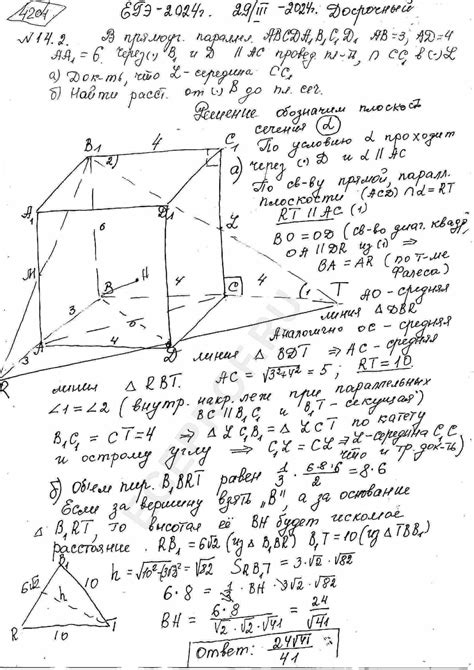 4204
ЕГЭ-2024г. 29/III-2024г. Досрочный
№14.2. В прямоуг. паралл. ABCDA₁B₁C₁D₁ AB=3, AD=4
AA₁=6. Через (·) B₁ и D ∥ AC провед. пл-ть, ∩ CC₁ в (·) L
а) Док-ть, что L-середина CC₁
б) Найти расст. от (·) B до пл. сеч.
Решение обозначим плоскость
сечения α
а) По условию α проходит
через (·) D и α ∥ AC
По св-ву прямой, паралл.
плоскости (ACD) ∩ α = RT
RT ∥ AC (1)
BO = OD (св-во диаг. квадр.
OA ∥ DR из (1) ⇒
BA = AR (по т-ме
Фалеса)
AO - средняя
линия △ DBR
Аналогично OC - средняя
линия △ BDT ⇒ AC - средняя
линия △ RBT. AC = √3²+4² = 5; RT = 10
∠1 = ∠2 (внутр. накр. леж. при параллельных
BC ∥ B₁C₁ и B₁T - секущая)
B₁C₁ = CT = 4 ⇒ △ LC₁B₁ = △ LCT по катету
и острому углу ⇒ C₁L = CL ⇒ L-середина C₁C
что и тр. док-ть)
б) Объем пир. B₁BRT равен 1/3 · 6·8·6/2 = 8·6
Если за вершину взять „B", а за основание
△ B₁RT, то высотая её BH будет искомое
расстояние. RB₁ = 6√2 (из △ B₁BR) B₁T = 10 (из △ TBB₁)
h = √10²-(3√2)² = √82 S RB₁T = 3·√2·√82
6·8 = 1/3 BH · 3√2·√82
BH = 6·8/√2·√2·√41 = 24/√41
Ответ: 24√41/41
B₁
4
C₁
2)
A₁
D₁
6
L
M
H
B
4
C
4
(1
T
3
A
3
4
D
R
B₁
6√2
10
h
R
10
T